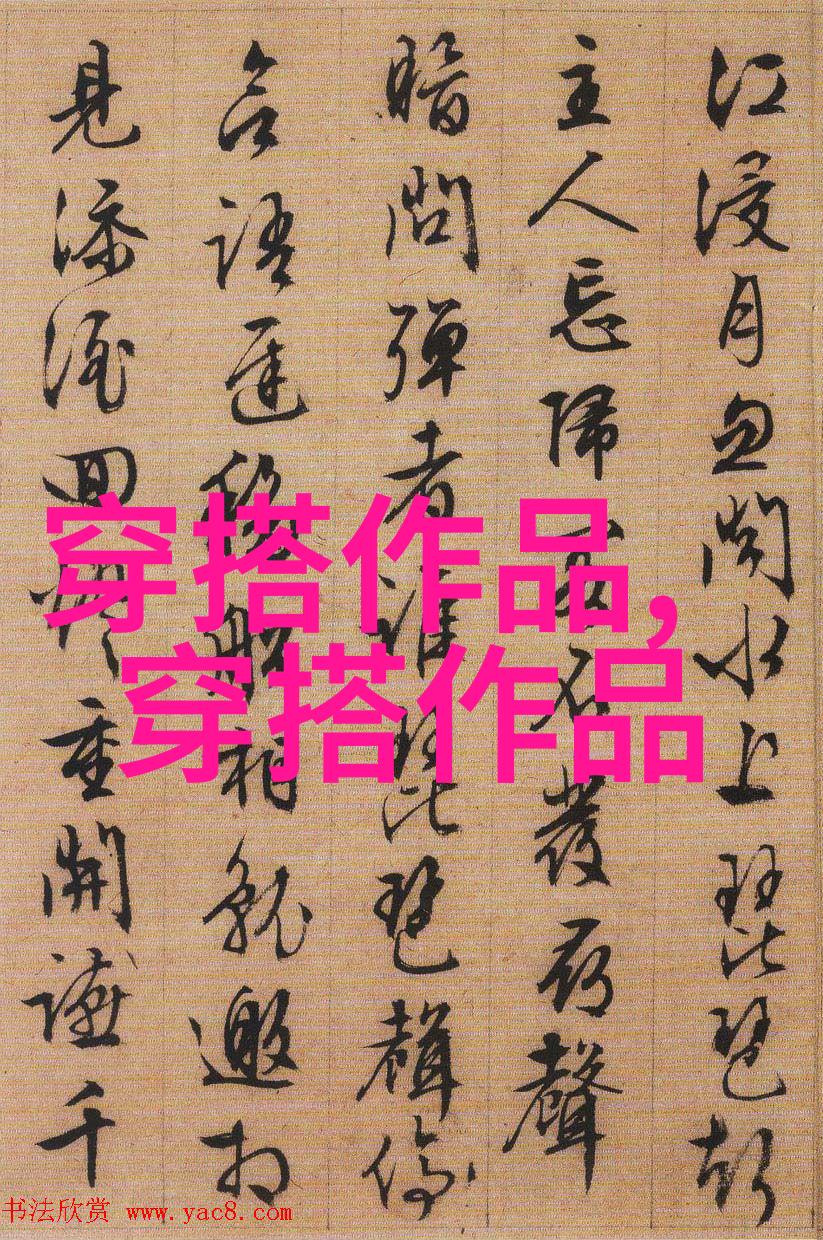 江浸月忽聞水上琵琶聲
主人忘歸客不發尋聲
暗問彈者誰琵琶聲停
語遲移船相就邀相
見添酒回燈重開讌千
穿搭作品,
穿搭作品
书法欣赏 www.yac8.com